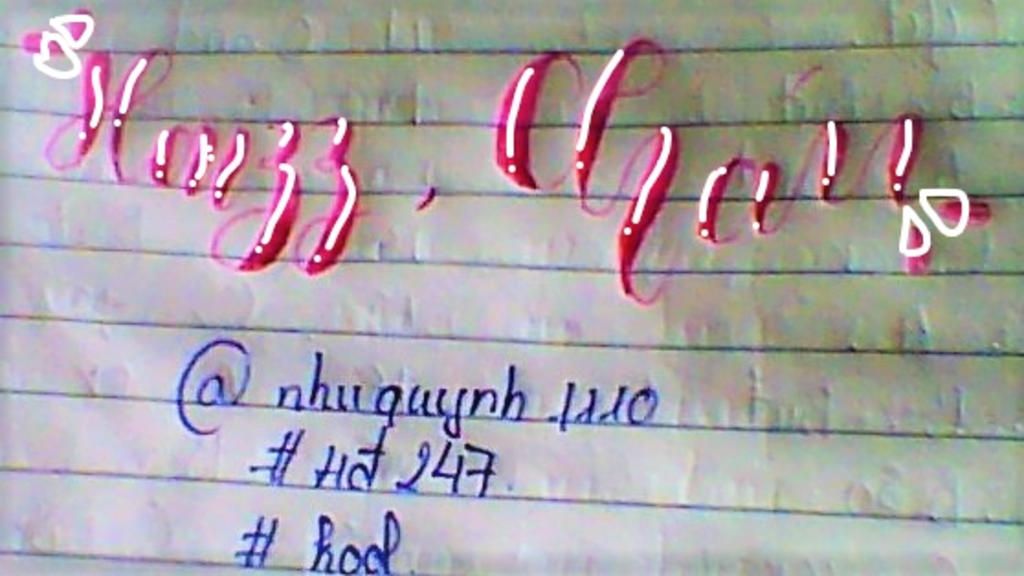 Hazz,
@nhuquynh_1110
# Hđ 247
# hod